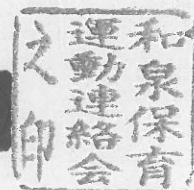 和泉保育
運動連絡会
之印